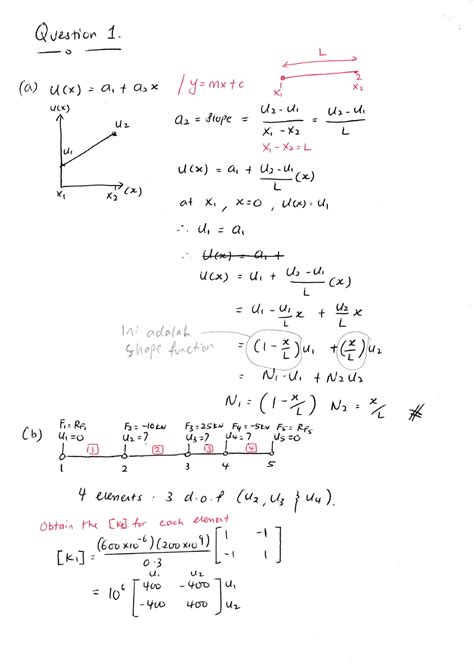 Question 1.
L
(a) U(x) = a₁ + a₂x / y=mx+c
x₁ 2 x₂
U(x)
u₂
u₁
x₁ x₂ (x)
a₂ = slope = (u₂-u₁)/(x₁-x₂) = (u₂-u₁)/L
x₁-x₂=L
U(x) = a₁ + (u₂-u₁)/L (x)
at x₁, x=0, U(x)=u₁
∴ u₁ = a₁
∴ U(x) = a₁ +
U(x) = u₁ + (u₂-u₁)/L (x)
= u₁ - u₁/L x + u₂/L x
Ini adalah
shape function
= (1-x/L)u₁ + (x/L)u₂
= N₁·u₁ + N₂u₂
N₁ = (1-x/L) N₂ = x/L #
(b) F₁=RF₁ F₂=-10kN F₃=25kN F₄=-5kN F₅=RF₅
u₁=0 u₂=? u₃=? u₄=? u₅=0
1 2 3 4
1 2 3 4 5
4 elements : 3 d.o.f (u₂, u₃ & u₄).
Obtain the [k] for each element
[K₁] = (600×10⁻⁶)(200×10⁹)/0.3 [1 -1
-1 1]
u₁ u₂
= 10⁶ [400 -400] u₁
[-400 400] u₂